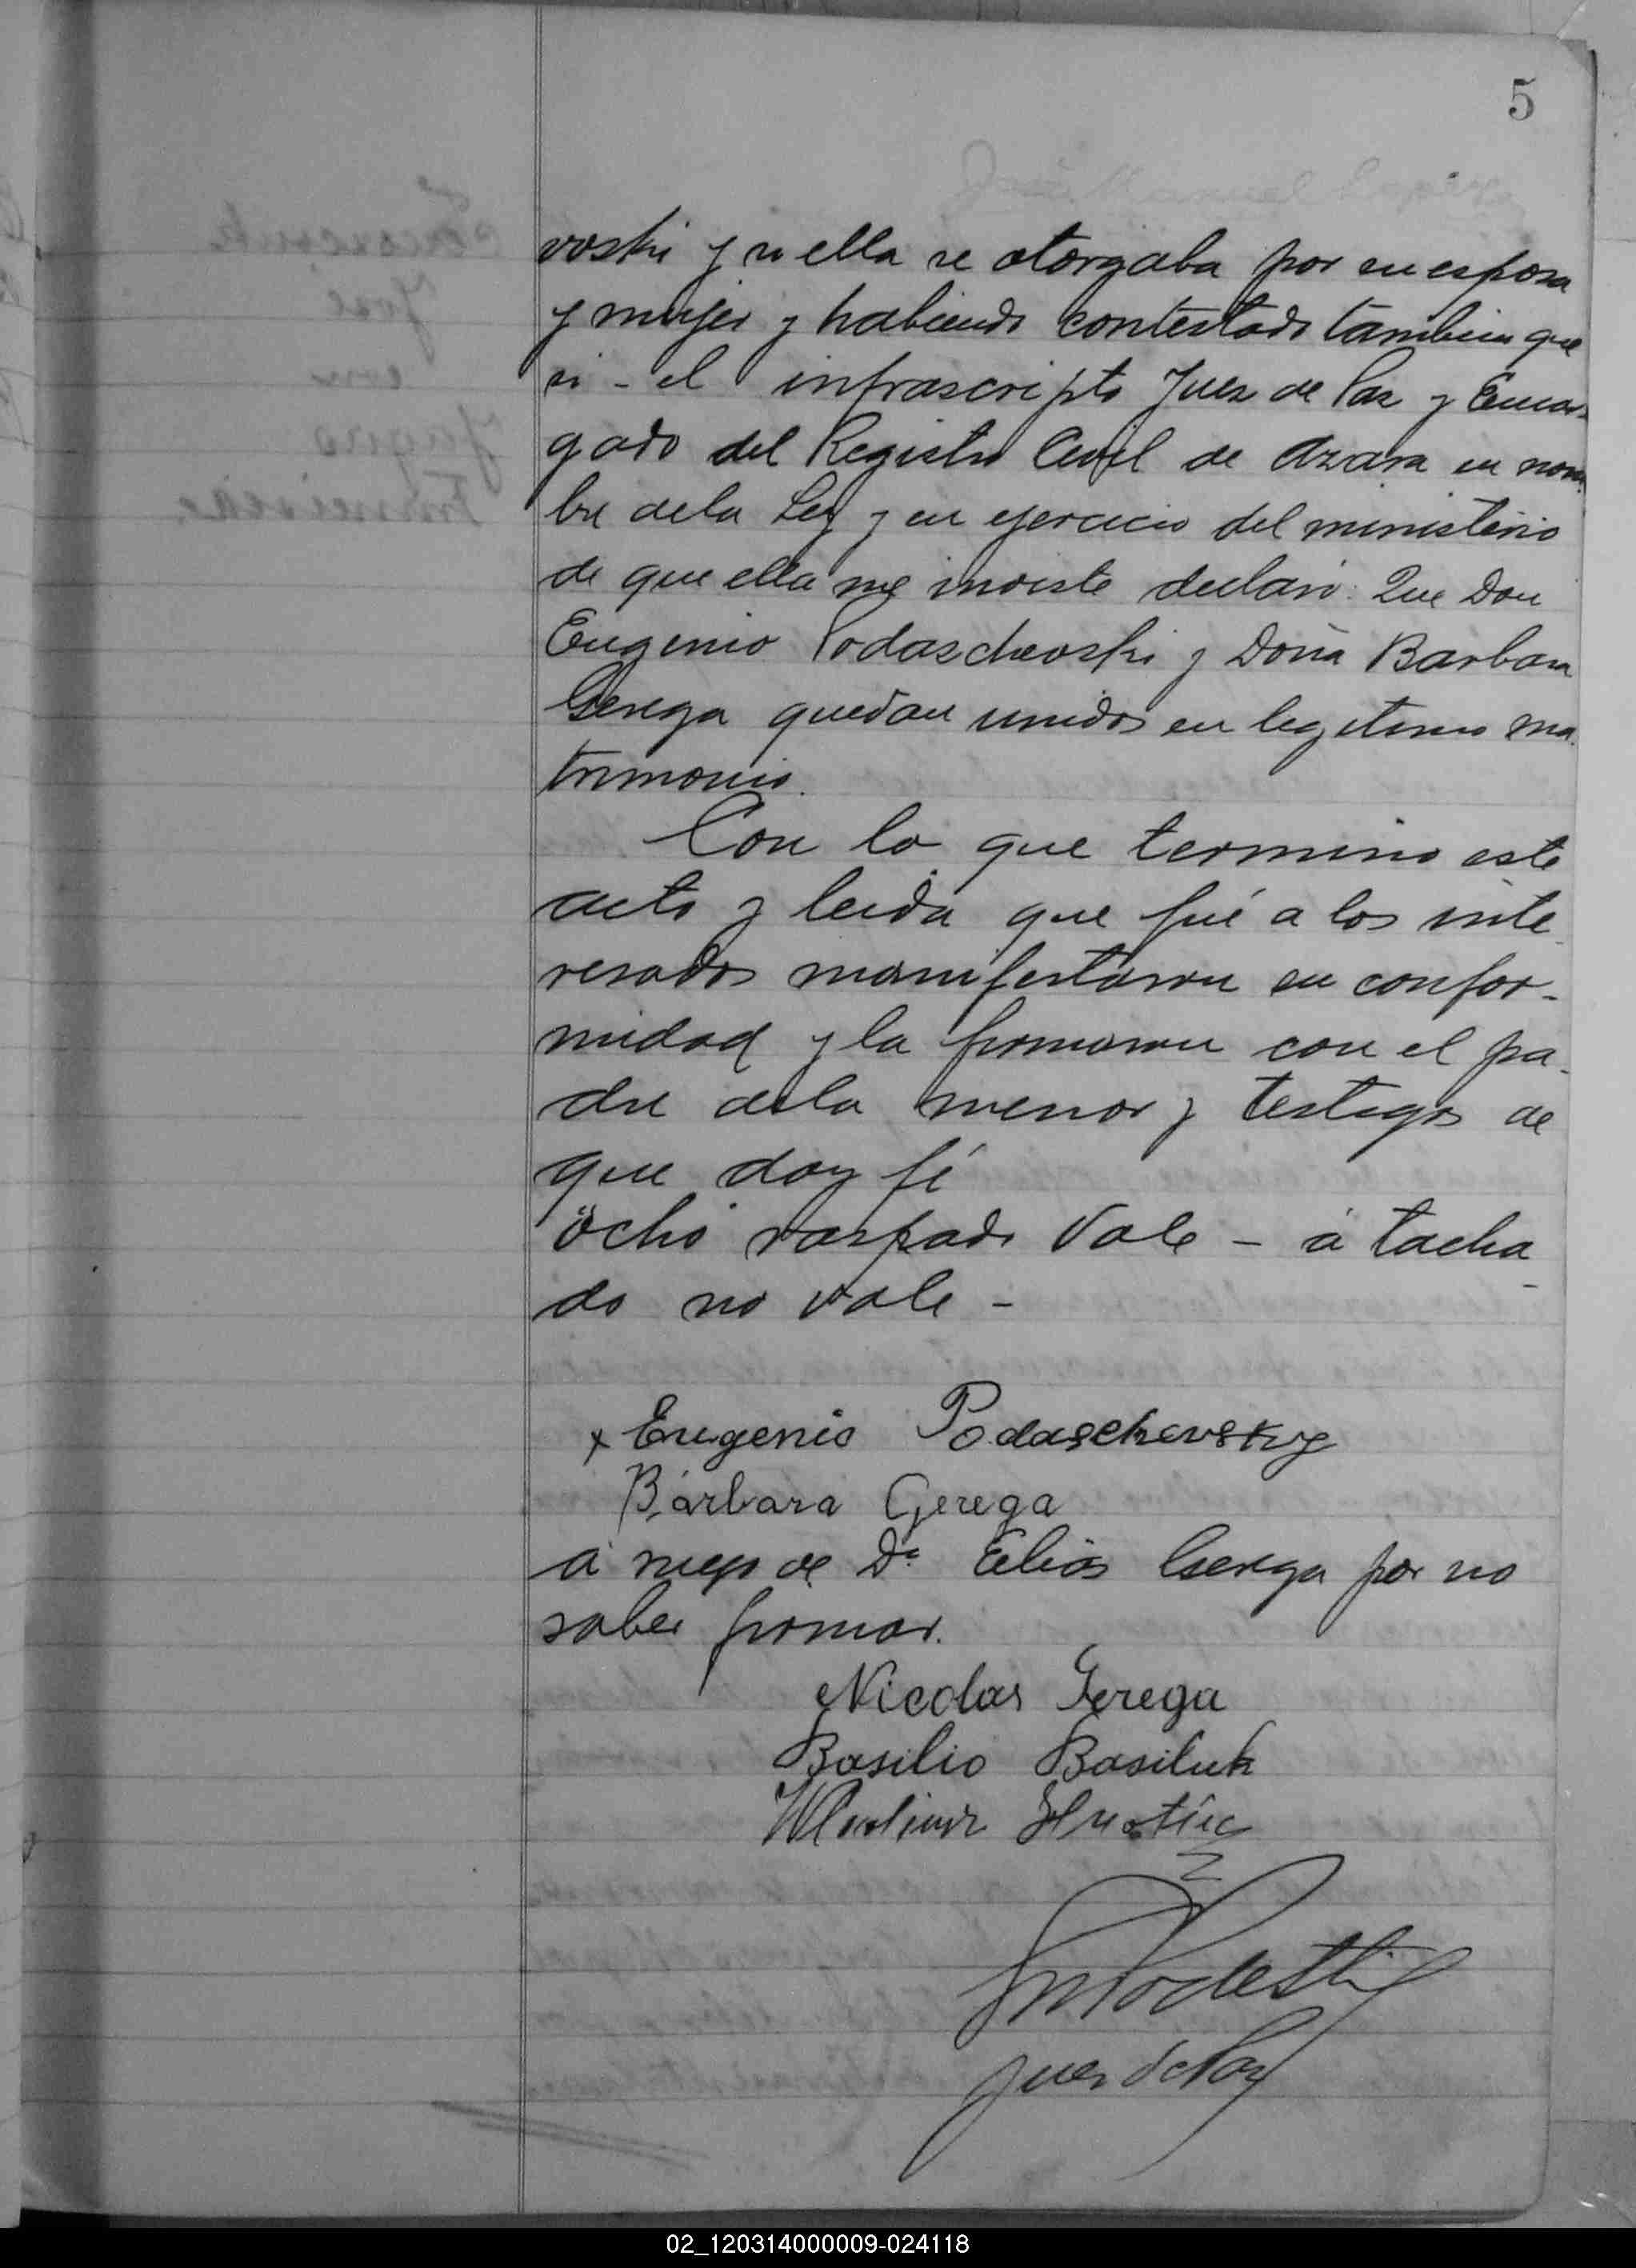 5
voski y si ella se otorgaba por su esposa
y mujer y habiendo contestado tambien que
si - el infrascripto Juez de Paz y Encar-
gado del Registro Civil de Azara en nom-
bre dela Ley y en ejercicio del ministerio
de que ella me inviste declaro: Que Don
Eugenio Podaschevoski y Doña Barbara
Gerega quedan unidos en legitimo ma-
trimonio.
Con lo que termino este
acto y leida que fué a los inte-
resados manifestaron su confor-
midad y la firmaron con el pa-
dre dela menor y testigos de
que doy fé
"ocho" raspado vale - á tacha-
do no vale -
x Eugenio Podaschevsky
Bárbara Gerega
A ruego de Dn Elias Gerega por no
saber firmar.
Nicolas Gerega
Basilio Basiluk
Wladimir
Podesti
Juez de Paz
02_120314000009-024118